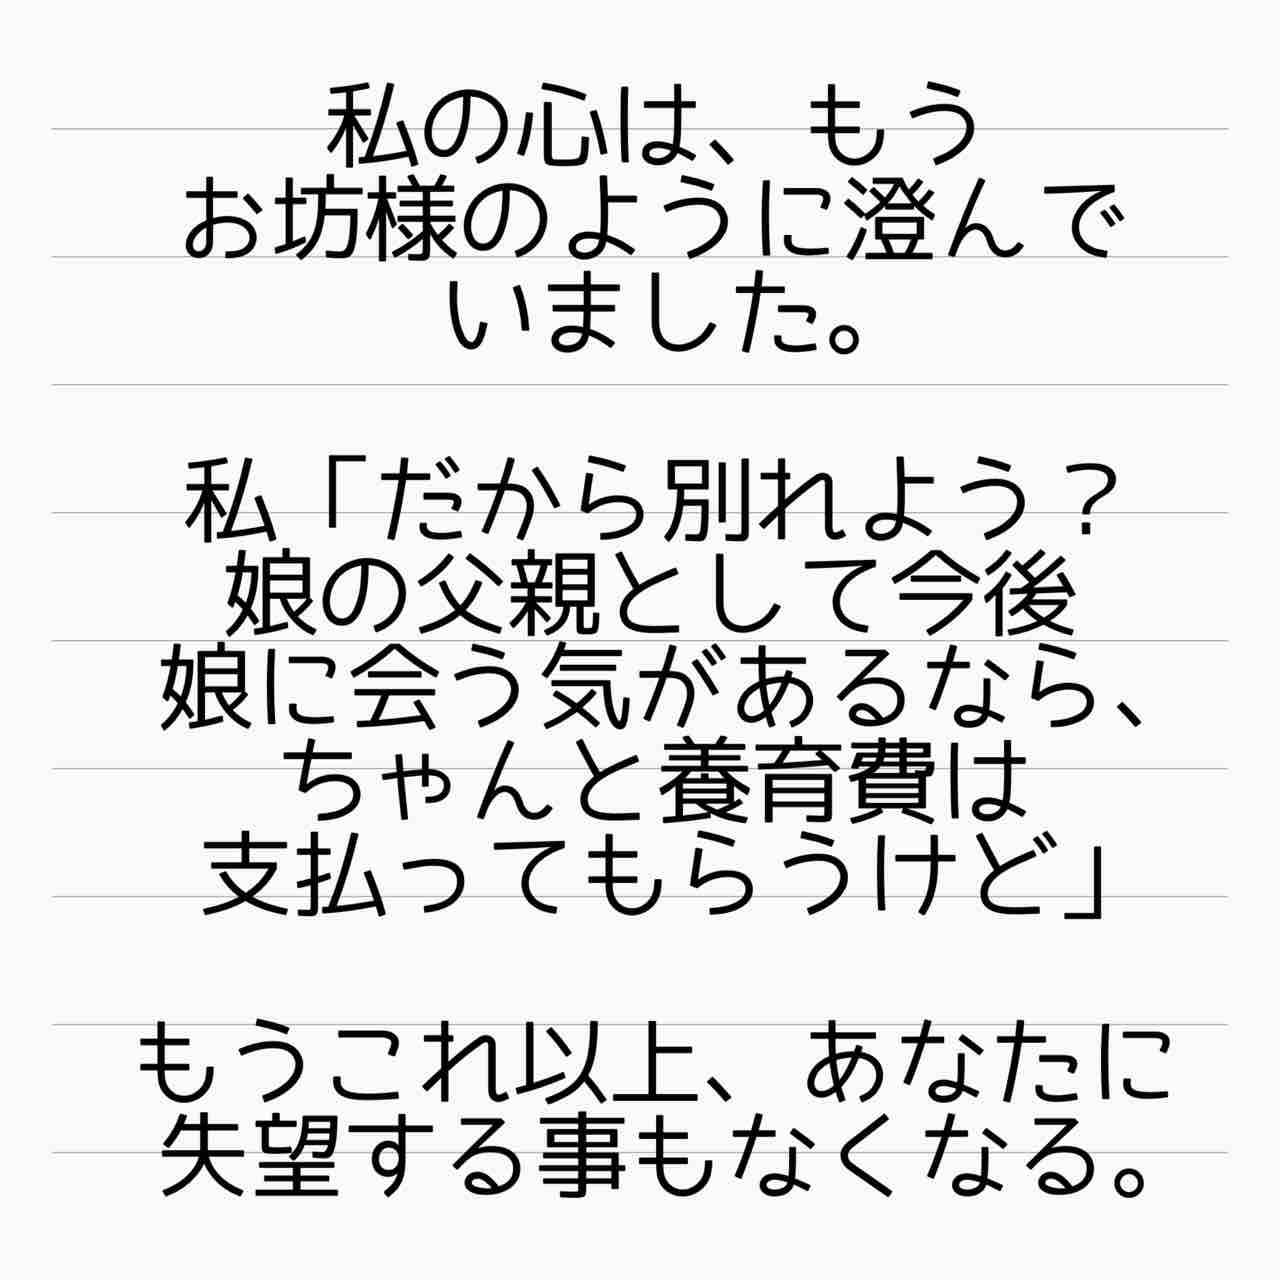 私の心は、もう
お坊様のように澄んで
いました。
私「だから別れよう？
娘の父親として今後
娘に会う気があるなら、
ちゃんと養育費は
支払ってもらうけど」
もうこれ以上、あなたに
失望する事もなくなる。